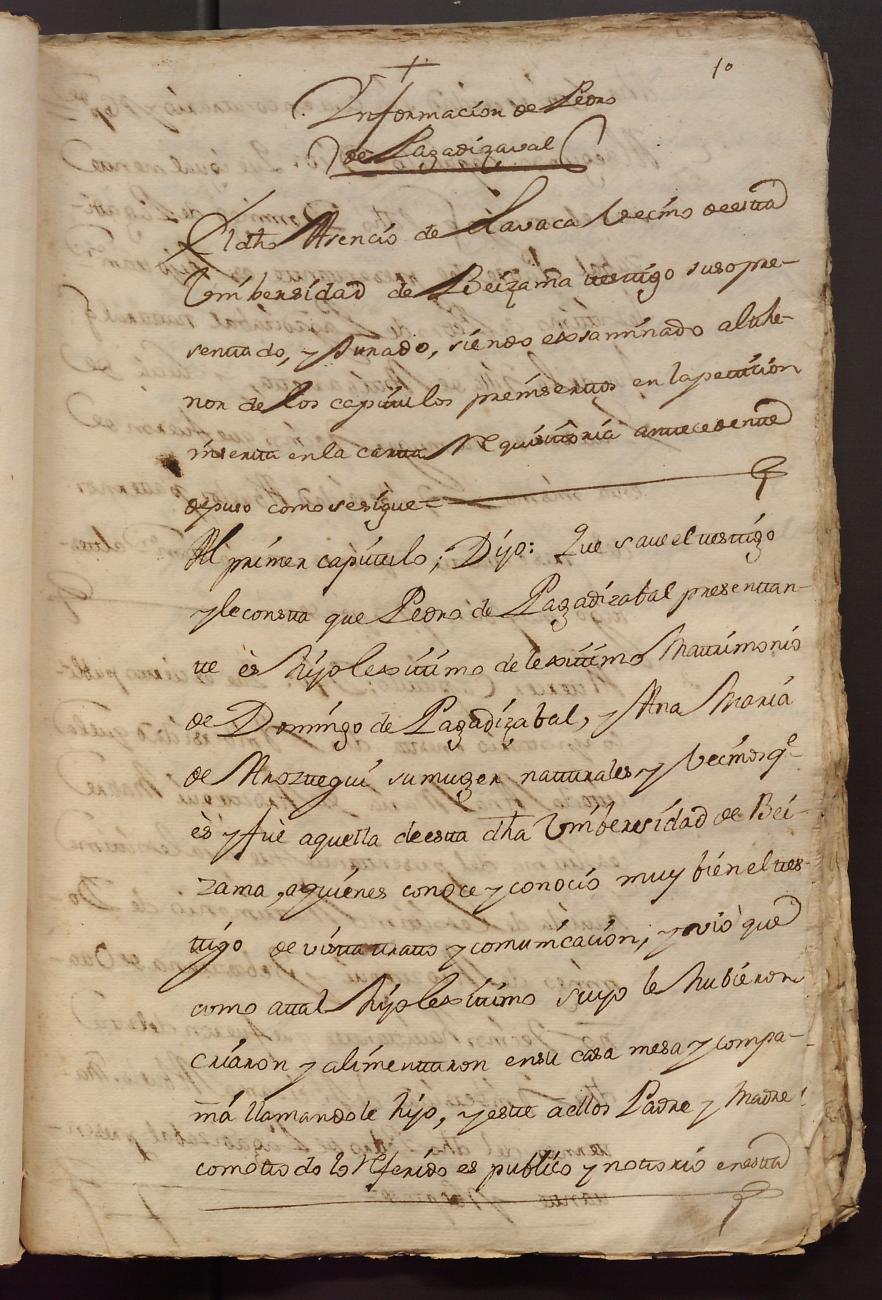 10
Informacion de Pedro
de Lagadizaval
El dho Asencio de Olavaca Vecino de esta
Vmbersidad de Beizama testigo suso pre-
sentado, y Jurado, siendo exsaminado al the-
nor de los capitulos preinsertos en la peticion
inserta en la carta Requisitoria antecedente
depuso como se sigue =
Al primer capitulo; Dijo: Que save el testigo
y le consta que Pedro de Lagadizabal presentan-
te ès hijo lexitimo de lexitimo Matrimonio
de Domingo de Lagadizabal, y Ana Maria
de Aroztegui su muger naturales y Vecinos q.e
ès y fue aquella de esta dha Vmbersidad de Bei-
zama, a quienes conoce y conocio muy bien el tes-
tigo de vista trato y comunicacion, y vio que
como a tal hijo lexitimo suyo le hubieron
criaron y alimentaron en su casa mesa y compa-
ñia llamandole hijo, y este a ellos Padre y Madre
como todo lo referido es publico y notorio en esta